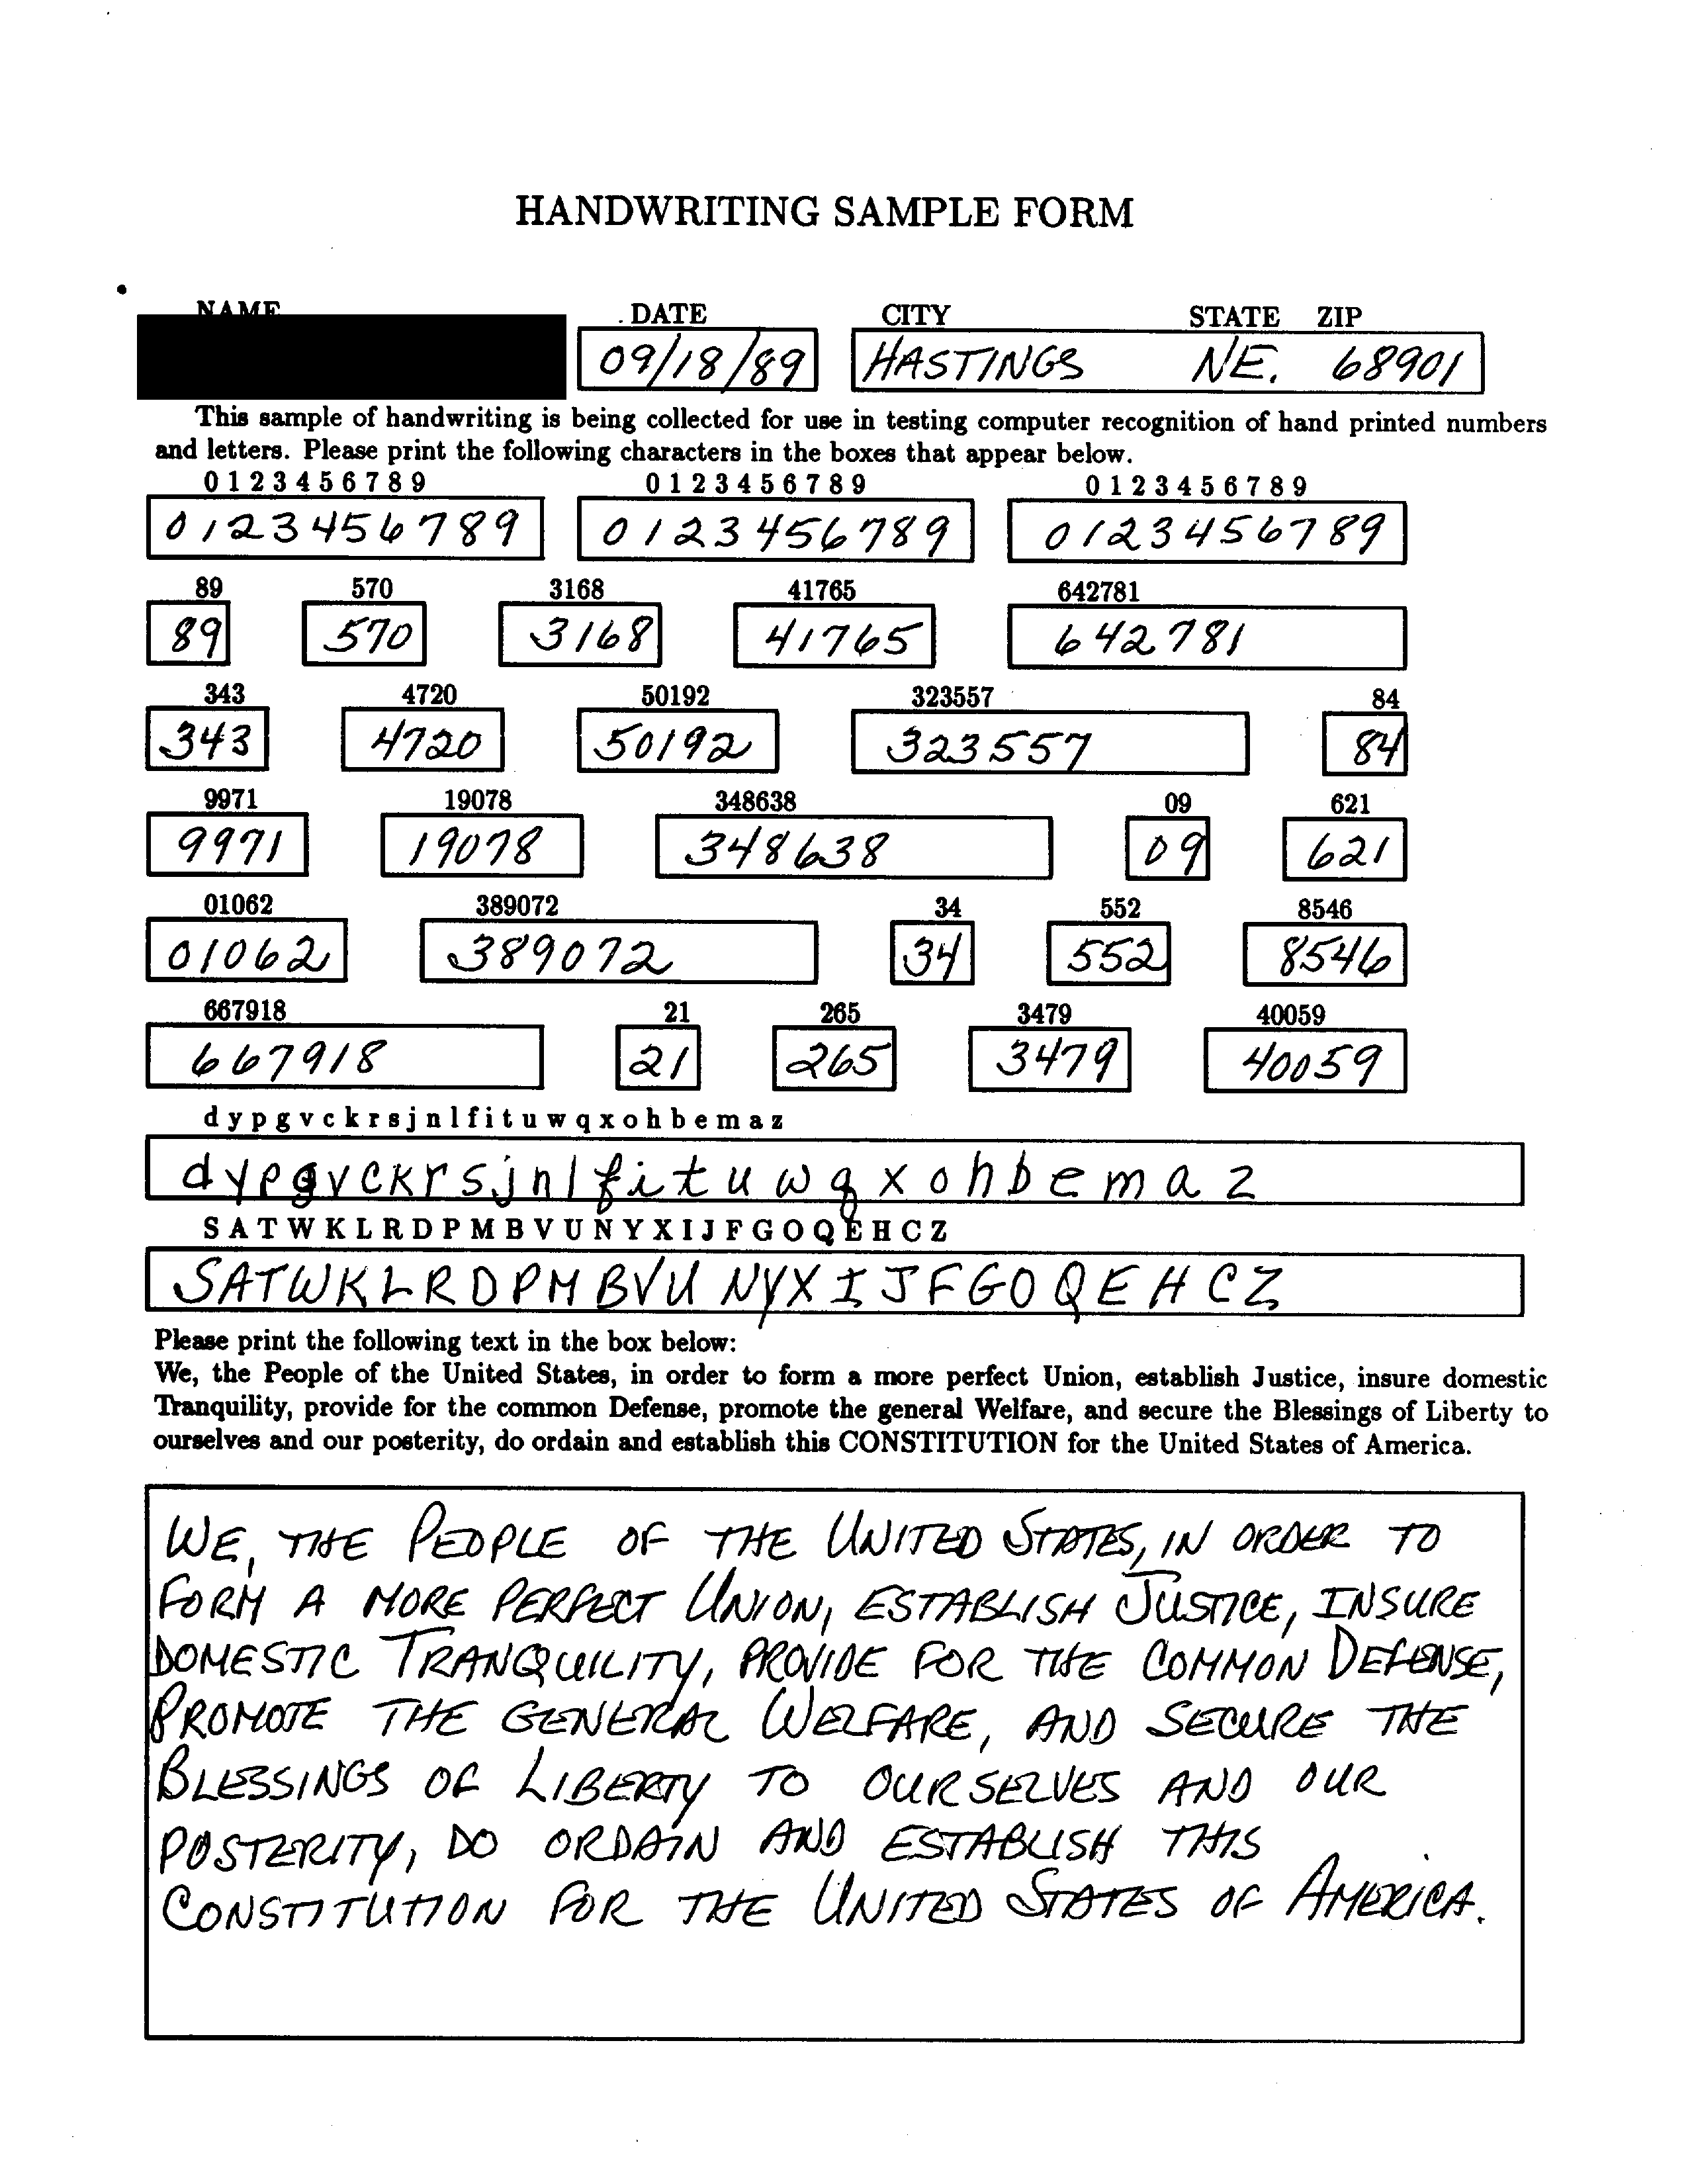 HANDWRITING SAMPLE FORM
NAME DATE CITY STATE ZIP
09/18/89 HASTINGS NE. 68901
This sample of handwriting is being collected for use in testing computer recognition of hand printed numbers
and letters. Please print the following characters in the boxes that appear below.
0 1 2 3 4 5 6 7 8 9 0 1 2 3 4 5 6 7 8 9 0 1 2 3 4 5 6 7 8 9
0123456789 0123456789 0123456789
89 570 3168 41765 642781
89 570 3168 41765 642781
343 4720 50192 323557 84
343 4720 50192 323557 84
9971 19078 348638 09 621
9971 19078 348638 09 621
01062 389072 34 552 8546
01062 389072 34 552 8546
667918 21 265 3479 40059
667918 21 265 3479 40059
d y p g v c k r s j n l f i t u w q x o h b e m a z
d y p g v c k r s j n l f i t u w q x o h b e m a z
S A T W K L R D P M B V U N Y X I J F G O Q E H C Z
S A T W K L R D P M B V U N Y X I J F G O Q E H C Z
Please print the following text in the box below:
We, the People of the United States, in order to form a more perfect Union, establish Justice, insure domestic
Tranquility, provide for the common Defense, promote the general Welfare, and secure the Blessings of Liberty to
ourselves and our posterity, do ordain and establish this CONSTITUTION for the United States of America.
WE, THE PEOPLE OF THE UNITED STATES, IN ORDER TO
FORM A MORE PERFECT UNION, ESTABLISH JUSTICE, INSURE
DOMESTIC TRANQUILITY, PROVIDE FOR THE COMMON DEFENSE,
PROMOTE THE GENERAL WELFARE, AND SECURE THE
BLESSINGS OF LIBERTY TO OURSELVES AND OUR
POSTERITY, DO ORDAIN AND ESTABLISH THIS
CONSTITUTION FOR THE UNITED STATES OF AMERICA.